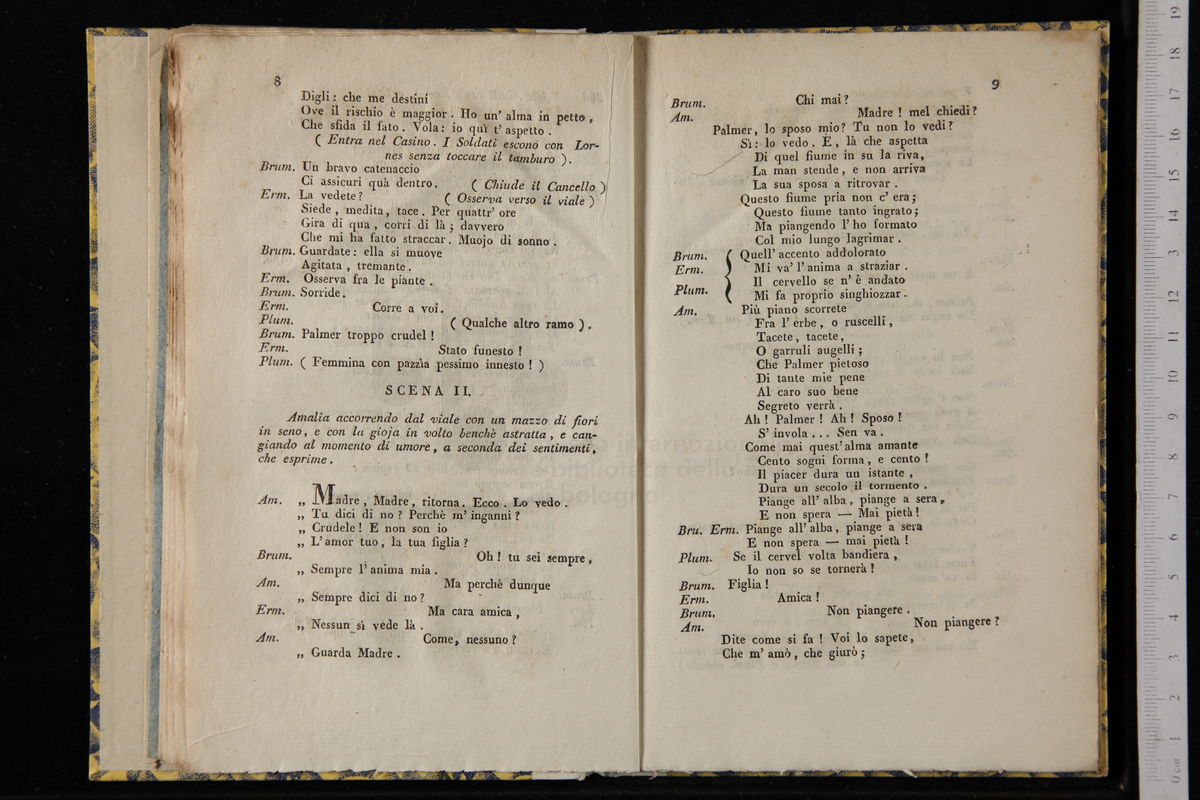 8
Digli : che me destini
Ove il rischio è maggior . Ho un' alma in petto ,
Che sfida il fato . Vola : io quì t' aspetto .
( Entra nel Casino . I Soldati escono con Lor-
nes senza toccare il tamburo ) .
Brum. Un bravo catenaccio
Ci assicuri quà dentro . ( Chiude il Cancello )
Erm. La vedete ? ( Osserva verso il viale )
Siede , medita , tace . Per quattr' ore
Gira di qua , corri di là ; davvero
Che mi ha fatto straccar . Muojo di sonno .
Brum. Guardate : ella si muove
Agitata , tremante .
Erm. Osserva fra le piante .
Brum. Sorride .
Erm. Corre a voi .
Plum. ( Qualche altro ramo ) .
Brum. Palmer troppo crudel !
Erm. Stato funesto !
Plum. ( Femmina con pazzìa pessimo innesto ! )
SCENA II.
Amalia accorrendo dal viale con un mazzo di fiori
in seno , e con la gioja in volto benchè astratta , e can-
giando al momento di umore , a seconda dei sentimenti ,
che esprime .
Am. „ Madre , Madre , ritorna . Ecco . Lo vedo .
„ Tu dici di no ? Perchè m' inganni ?
„ Crudele ! E non son io
„ L' amor tuo , la tua figlia ?
Brum. Oh ! tu sei sempre ,
„ Sempre l' anima mia .
Am. Ma perchè dunque
„ Sempre dici di no ?
Erm. Ma cara amica ,
„ Nessun si vede là .
Am. Come , nessuno ?
„ Guarda Madre .
9
Brum. Chi mai ?
Am. Madre ! mel chiedi ?
Palmer , lo sposo mio ? Tu non lo vedi ?
Sì : lo vedo . E , là che aspetta
Di quel fiume in su la riva ,
La man stende , e non arriva
La sua sposa a ritrovar .
Questo fiume pria non c' era ;
Questo fiume tanto ingrato ;
Ma piangendo l' ho formato
Col mio lungo lagrimar .
Brum. Quell' accento addolorato
Erm. Mi va' l' anima a straziar .
Il cervello se n' è andato
Plum. Mi fa proprio singhiozzar .
Am. Più piano scorrete
Fra l' erbe , o ruscelli ,
Tacete , tacete ,
O garruli augelli ;
Che Palmer pietoso
Di tante mie pene
Al caro suo bene
Segreto verrà .
Ah ! Palmer ! Ah ! Sposo !
S' invola . . . Sen va .
Come mai quest' alma amante
Cento sogni forma , e cento !
Il piacer dura un istante ,
Dura un secolo il tormento .
Piange all' alba , piange a sera ,
E non spera — Mai pietà !
Bru. Erm. Piange all' alba , piange a sera
E non spera — mai pietà !
Plum. Se il cervel volta bandiera ,
Io non so se tornerà !
Brum. Figlia !
Erm. Amica !
Brum. Non piangere .
Am. Non piangere ?
Dite come si fa ! Voi lo sapete ,
Che m' amò , che giurò ;